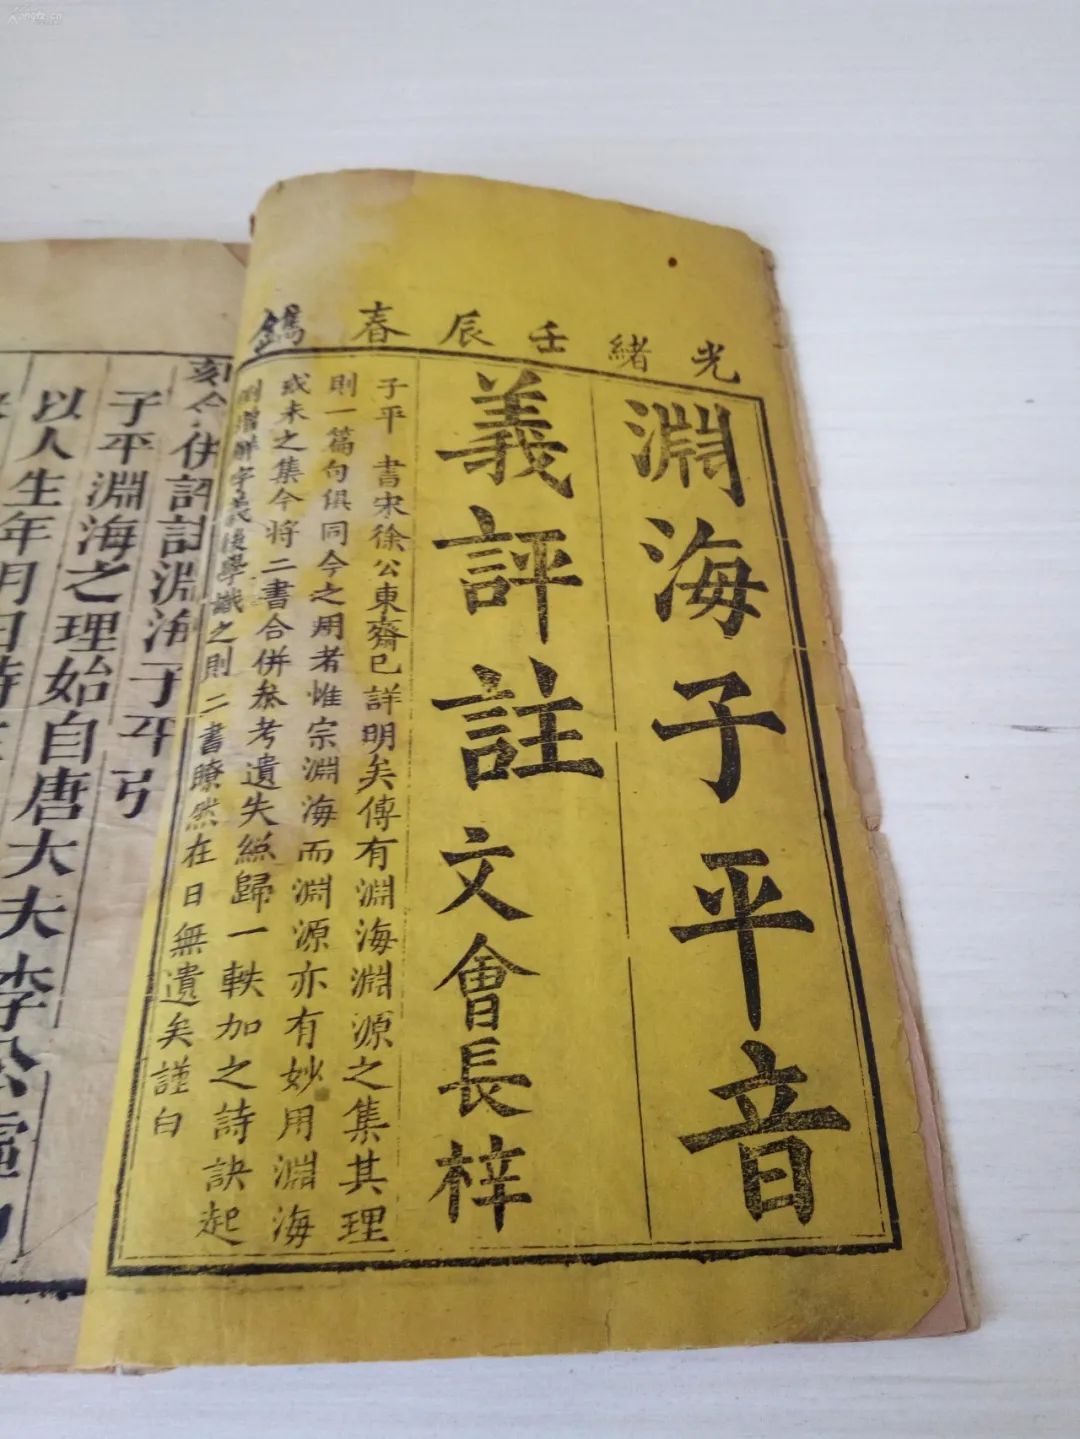 光緒壬辰春鐫
淵海子平音
義評註文會長梓
子平書宋徐公東齋已詳明矣傳有淵海淵源之集其理
則一篇句俱同今之用者惟宗淵海而淵源亦有妙用淵海
或未之集今將二書合併叅考遺失総歸一軼加之詩訣起
例增觧字義後學識之則二書瞭然在目無遺矣謹白
刻合併評註淵海子平引
子平淵海之理始自唐大夫李
以人生年月日時